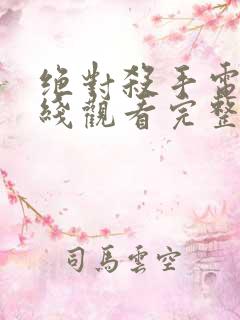 絕對殺手電
綫觀看完整
司馬雲空